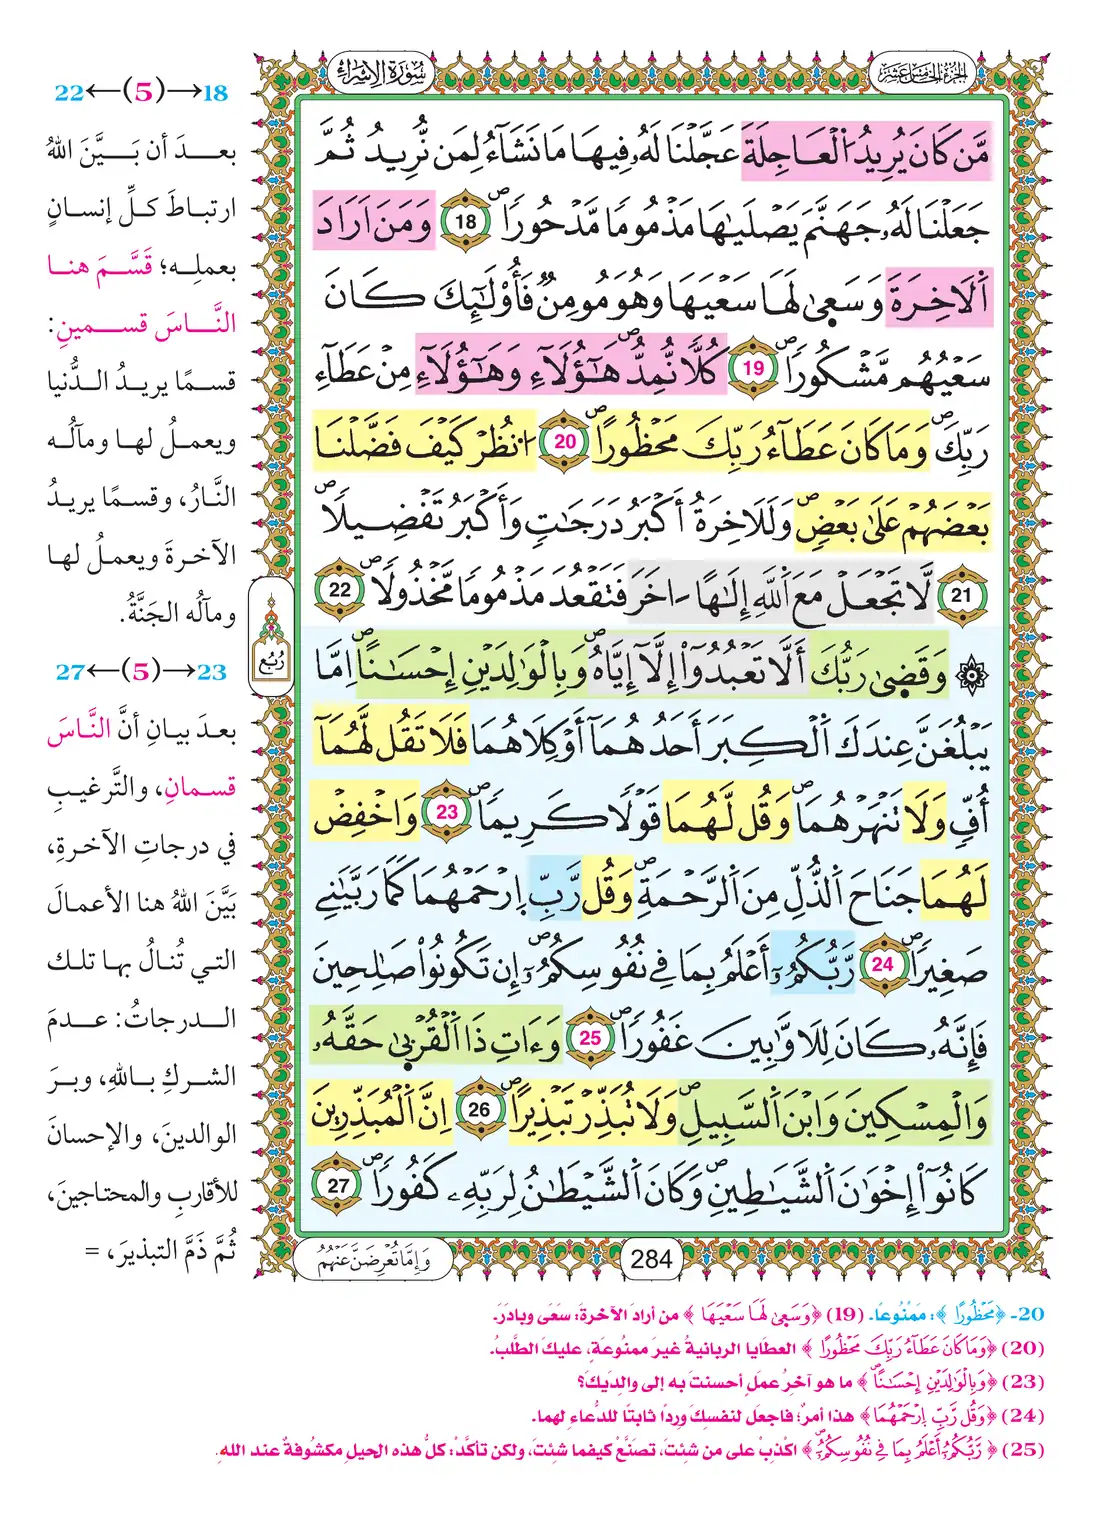 سُورَةُ الإِسْرَاءِ
الجزء الخامس عشر
مَّن كَانَ يُرِيدُ اُ۬لْعَاجِلَةَ عَجَّلْنَا لَهُۥ فِيهَا مَا نَشَآءُ لِمَن نُّرِيدُ ثُمَّ
جَعَلْنَا لَهُۥ جَهَنَّمَ يَصْلَىٰهَا مَذْمُومًا مَّدْحُورًا 18 وَمَنَ اَرَادَ
اَ۬لَاخِرَةَ وَسَعىٰ لَهَا سَعْيَهَا وَهُوَ مُومِنٌ فَأُوْلَٰٓئِكَ كَانَ
سَعْيُهُم مَّشْكُورًا 19 كُلّٗا نُّمِدُّ هَٰٓؤُلَآءِ وَهَٰٓؤُلَآءِ مِنْ عَطَآءِ
رَبِّكَ وَمَا كَانَ عَطَآءُ رَبِّكَ مَحْظُورًا 20 اَ۟نظُرْ كَيْفَ فَضَّلْنَا
بَعْضَهُمْ عَلَىٰ بَعْضٍ وَلَلَاخِرَةُ أَكْبَرُ دَرَجَٰتٍ وَأَكْبَرُ تَفْضِيلًا
21 لَّا تَجْعَلْ مَعَ اَ۬للَّهِ إِلَٰهًا اٰخَرَ فَتَقْعُدَ مَذْمُومًا مَّخْذُولًا 22
۞ وَقَضىٰ رَبُّكَ أَلَّا تَعْبُدُوٓاْ إِلَّآ إِيَّاهُ وَبِالْوَٰلِدَيْنِ إِحْسَٰنًا اِمَّا
يَبْلُغَنَّ عِندَكَ اَ۬لْكِبَرَ أَحَدُهُمَآ أَوْ كِلَاهُمَا فَلَا تَقُل لَّهُمَآ
أُفٍّ وَلَا تَنْهَرْهُمَا وَقُل لَّهُمَا قَوْلًا كَرِيمًا 23 وَاخْفِضْ
لَهُمَا جَنَاحَ اَ۬لذُّلِّ مِنَ اَ۬لرَّحْمَةِ وَقُل رَّبِّ اِ۪رْحَمْهُمَا كَمَا رَبَّيَٰنِے
صَغِيرًا 24 رَّبُّكُمُۥٓ أَعْلَمُ بِمَا فِے نُفُوسِكُمُۥٓ إِن تَكُونُواْ صَٰلِحِينَ
فَإِنَّهُۥ كَانَ لِلَاوَّٰبِينَ غَفُورًا 25 وَءَاتِ ذَا اَ۬لْقُرْبىٰ حَقَّهُۥ
وَالْمِسْكِينَ وَابْنَ اَ۬لسَّبِيلِ وَلَا تُبَذِّرْ تَبْذِيرًا 26 اِنَّ اَ۬لْمُبَذِّرِينَ
كَانُوٓاْ إِخْوَٰنَ اَ۬لشَّيَٰطِينِ وَكَانَ اَ۬لشَّيْطَٰنُ لِرَبِّهِۦ كَفُورًا 27
وَإِمَّا تُعْرِضَنَّ عَنْهُمُ
284
رُبُع
18→(5)←22
بعدَ أن بَيَّنَ اللهُ
ارتباطَ كلِّ إنسانٍ
بعملِه؛ قَسَّمَ هنا
النَّاسَ قسمينِ:
قسمًا يريدُ الدُّنيا
ويعملُ لها ومآلُه
النَّارُ، وقسمًا يريدُ
الآخرةَ ويعملُ لها
ومآلُه الجَنَّةُ.
23→(5)←27
بعدَ بيانِ أنَّ النَّاسَ
قسمانِ، والتَّرغيبِ
في درجاتِ الآخرةِ،
بَيَّنَ اللهُ هنا الأعمالَ
التي تُنالُ بها تلك
الدرجاتُ: عدمَ
الشركِ باللهِ، وبرَ
الوالدينَ، والإحسانَ
للأقاربِ والمحتاجينَ،
ثُمَّ ذَمَّ التبذيرَ، =
20- ﴿مَحْظُورًا﴾: مَمْنُوعًا. (19) ﴿وَسَعىٰ لَهَا سَعْيَهَا﴾ من أرادَ الآخرةَ: سَعَى وبادَرَ.
(20) ﴿وَمَا كَانَ عَطَآءُ رَبِّكَ مَحْظُورًا﴾ العطايا الربانيةُ غيرَ ممنُوعةٍ، عليكَ الطَّلبُ.
(23) ﴿وَبِالْوَٰلِدَيْنِ إِحْسَٰنًا﴾ ما هو آخرُ عملٍ أحسنتَ به إلى والدِيكَ؟
(24) ﴿وَقُل رَّبِّ اِ۪رْحَمْهُمَا﴾ هذا أمرٌ؛ فاجعل لنفسكَ وِردًا ثابتًا للدُّعاءِ لهما.
(25) ﴿رَّبُّكُمُۥٓ أَعْلَمُ بِمَا فِے نُفُوسِكُمُۥٓ﴾ اكذبْ على من شئتَ، تصَنَّعْ كيفما شئتَ، ولكن تأكَّدْ: كلُّ هذه الحيلِ مكشُوفةٌ عند الله.